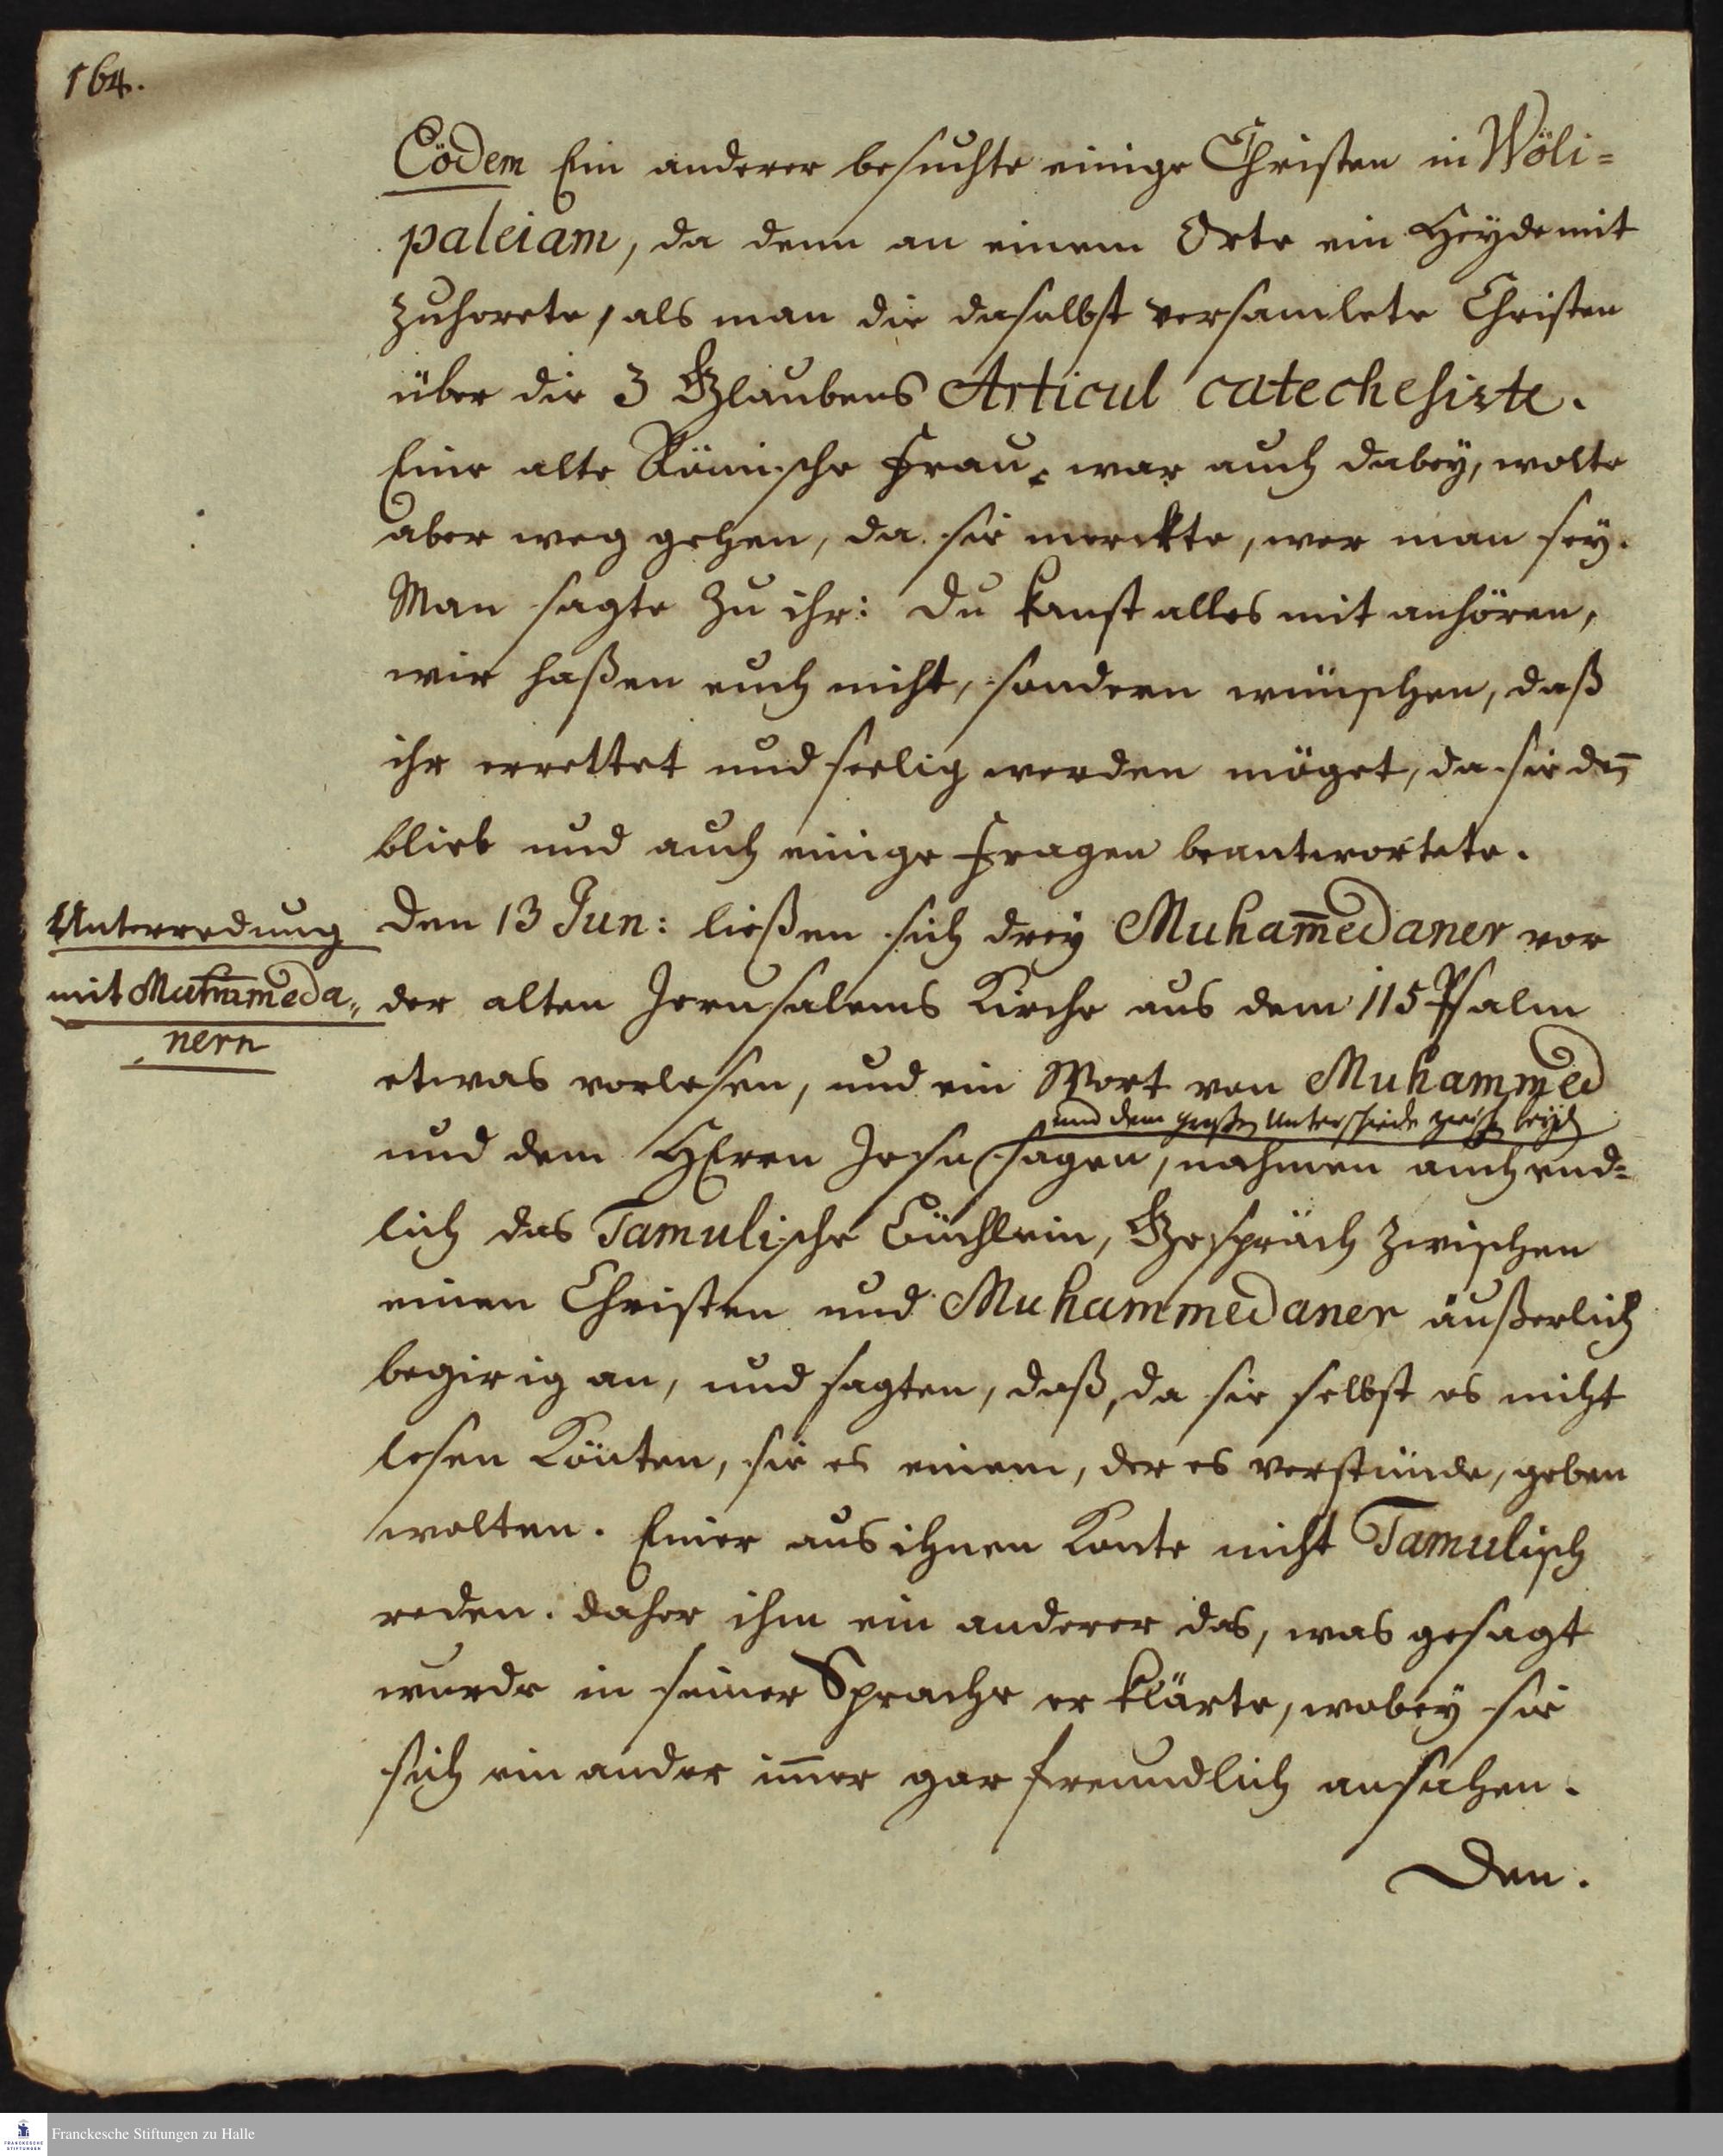 164.
Eodem Ein anderer besuchte einige Christen in Wöli=
paleiam, da denn an einem Orte ein Heyde mit
zuhorete, als man die daselbst versamlete Christen
über die 3 Glaubens Articul catechesirte.
Eine alte Römische Frau, war auch dabey, wolte
aber weg gehen, da sie merckte, wer man sey.
Man sagte zu ihr: du kanst alles mit anhören,
wir haßen euch nicht, sondern wünschen, daß
ihr errettet und seelig werden möget, da sie den̄
blieb und auch einige Fragen beantwortete.
Unterredung
mit Muham̄eda„
nern
Den 13 Jun: ließen sich drey Muham̄edaner vor
der alten Jerusalems Kirche aus dem 115 Psalm
etwas vorlesen, und ein Wort von Muhammed
und dem großen Unterschiede zwisch beyd
und dem HErrn Jesu sagen, nahmen auch end=
lich das Tamulische Büchlein, Gespräch zwischen
einen Christen und Muhammedaner äußerlich
begirig an, und sagten, daß, da sie selbst es nicht
lesen könten, sie es einem, der es verstünde, geben
wolten. Einer aus ihnen konte nicht Tamulisch
reden. daher ihm ein anderer das, was gesagt
wurde in seiner Sprache erklärte, wobey sie
sich einander im̄er gar freundlich ansahen.
Den.
Franckesche Stiftungen zu Halle
FRANCKESCHE
STIFTUNGEN